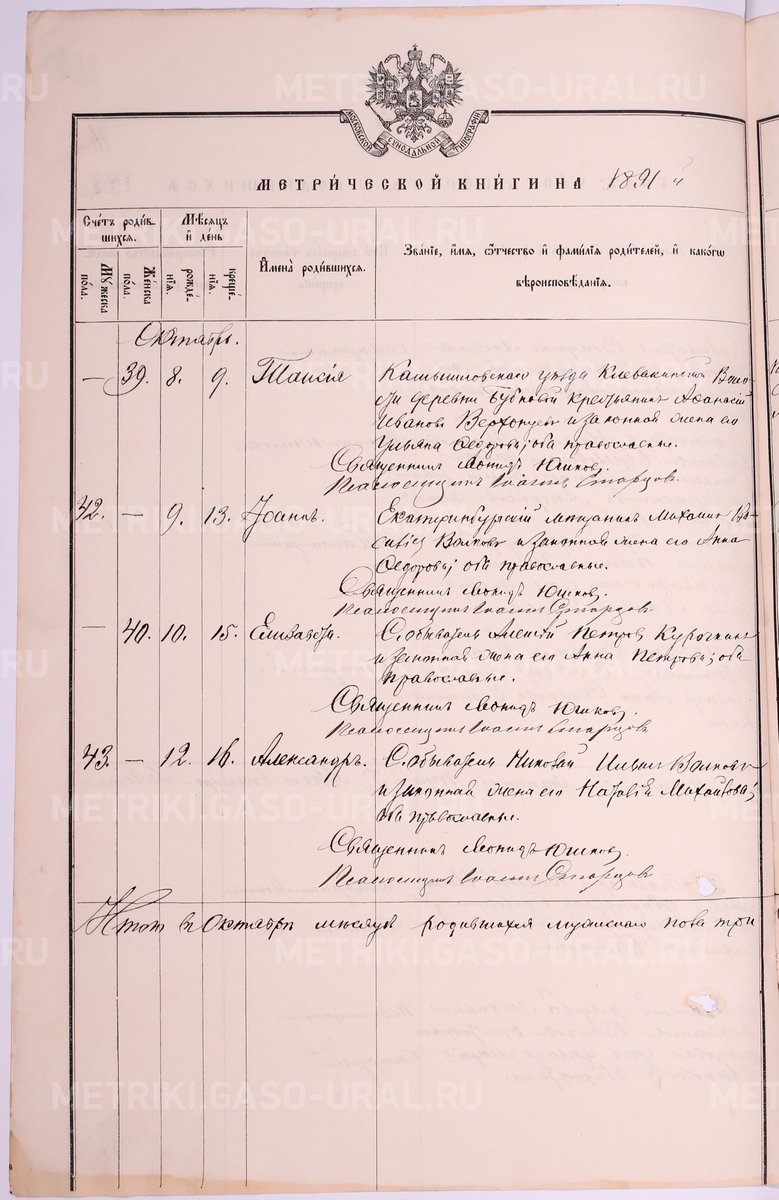 МОСКОВСКОЙ СѴНОДАЛЬНОЙ ТИПОГРАФІИ
МЕТРИ́ЧЕСКОЙ КНИ́ГИ НА 1891 й
Сче́тъ роди́вшихся.
Му́жеска по́ла.
Же́нска по́ла.
Мѣ́сяцъ и҆ де́нь
рожде́нїѧ.
креще́нїѧ.
И҆мена̀ роди́вшихся.
Зва́нїе, и҆́мѧ, ѻ҆́тчество и҆ фами́лїѧ роди́телей, и҆ како́гѡ
вѣроисповѣ́данїѧ.
Октябрь.
— 39. 8. 9. Таисія Камышловскаго уѣзда Клевакинской Воло
сти деревни Бубновой крестьянинъ Аѳанасій
Ивановъ Верхонцевъ и законная жена его
Ульяна Ѳедорова; оба православные.
Священникъ Леонидъ Юшковъ.
Псаломщикъ Іоаннъ Старцовъ.
42. — 9. 13. Іоаннъ. Екатеринбургскій мѣщанинъ Михаилъ Ва
сильевъ Волковъ и законная жена его Анна
Ѳедорова; оба православные.
Священникъ Леонидъ Юшковъ.
Псаломщикъ Іоаннъ Старцовъ.
— 40. 10. 15. Елизавета. С. обыватель Алексѣй Петровъ Курочкинъ
и законная жена его Анна Петрова; оба
православные.
Священникъ Леонидъ Юшковъ.
Псаломщикъ Іоаннъ Старцовъ
43. — 12. 16. Александръ. С. обыватель Николай Ильинъ Волковъ
и законная жена его Наталія Михайлова;
оба православные.
Священникъ Леонидъ Юшковъ.
Псаломщикъ Іоаннъ Старцовъ
Итого въ Октябрѣ мѣсяцѣ родившихся мужескаго пола три
METRIKI.GASO-URAL.RU